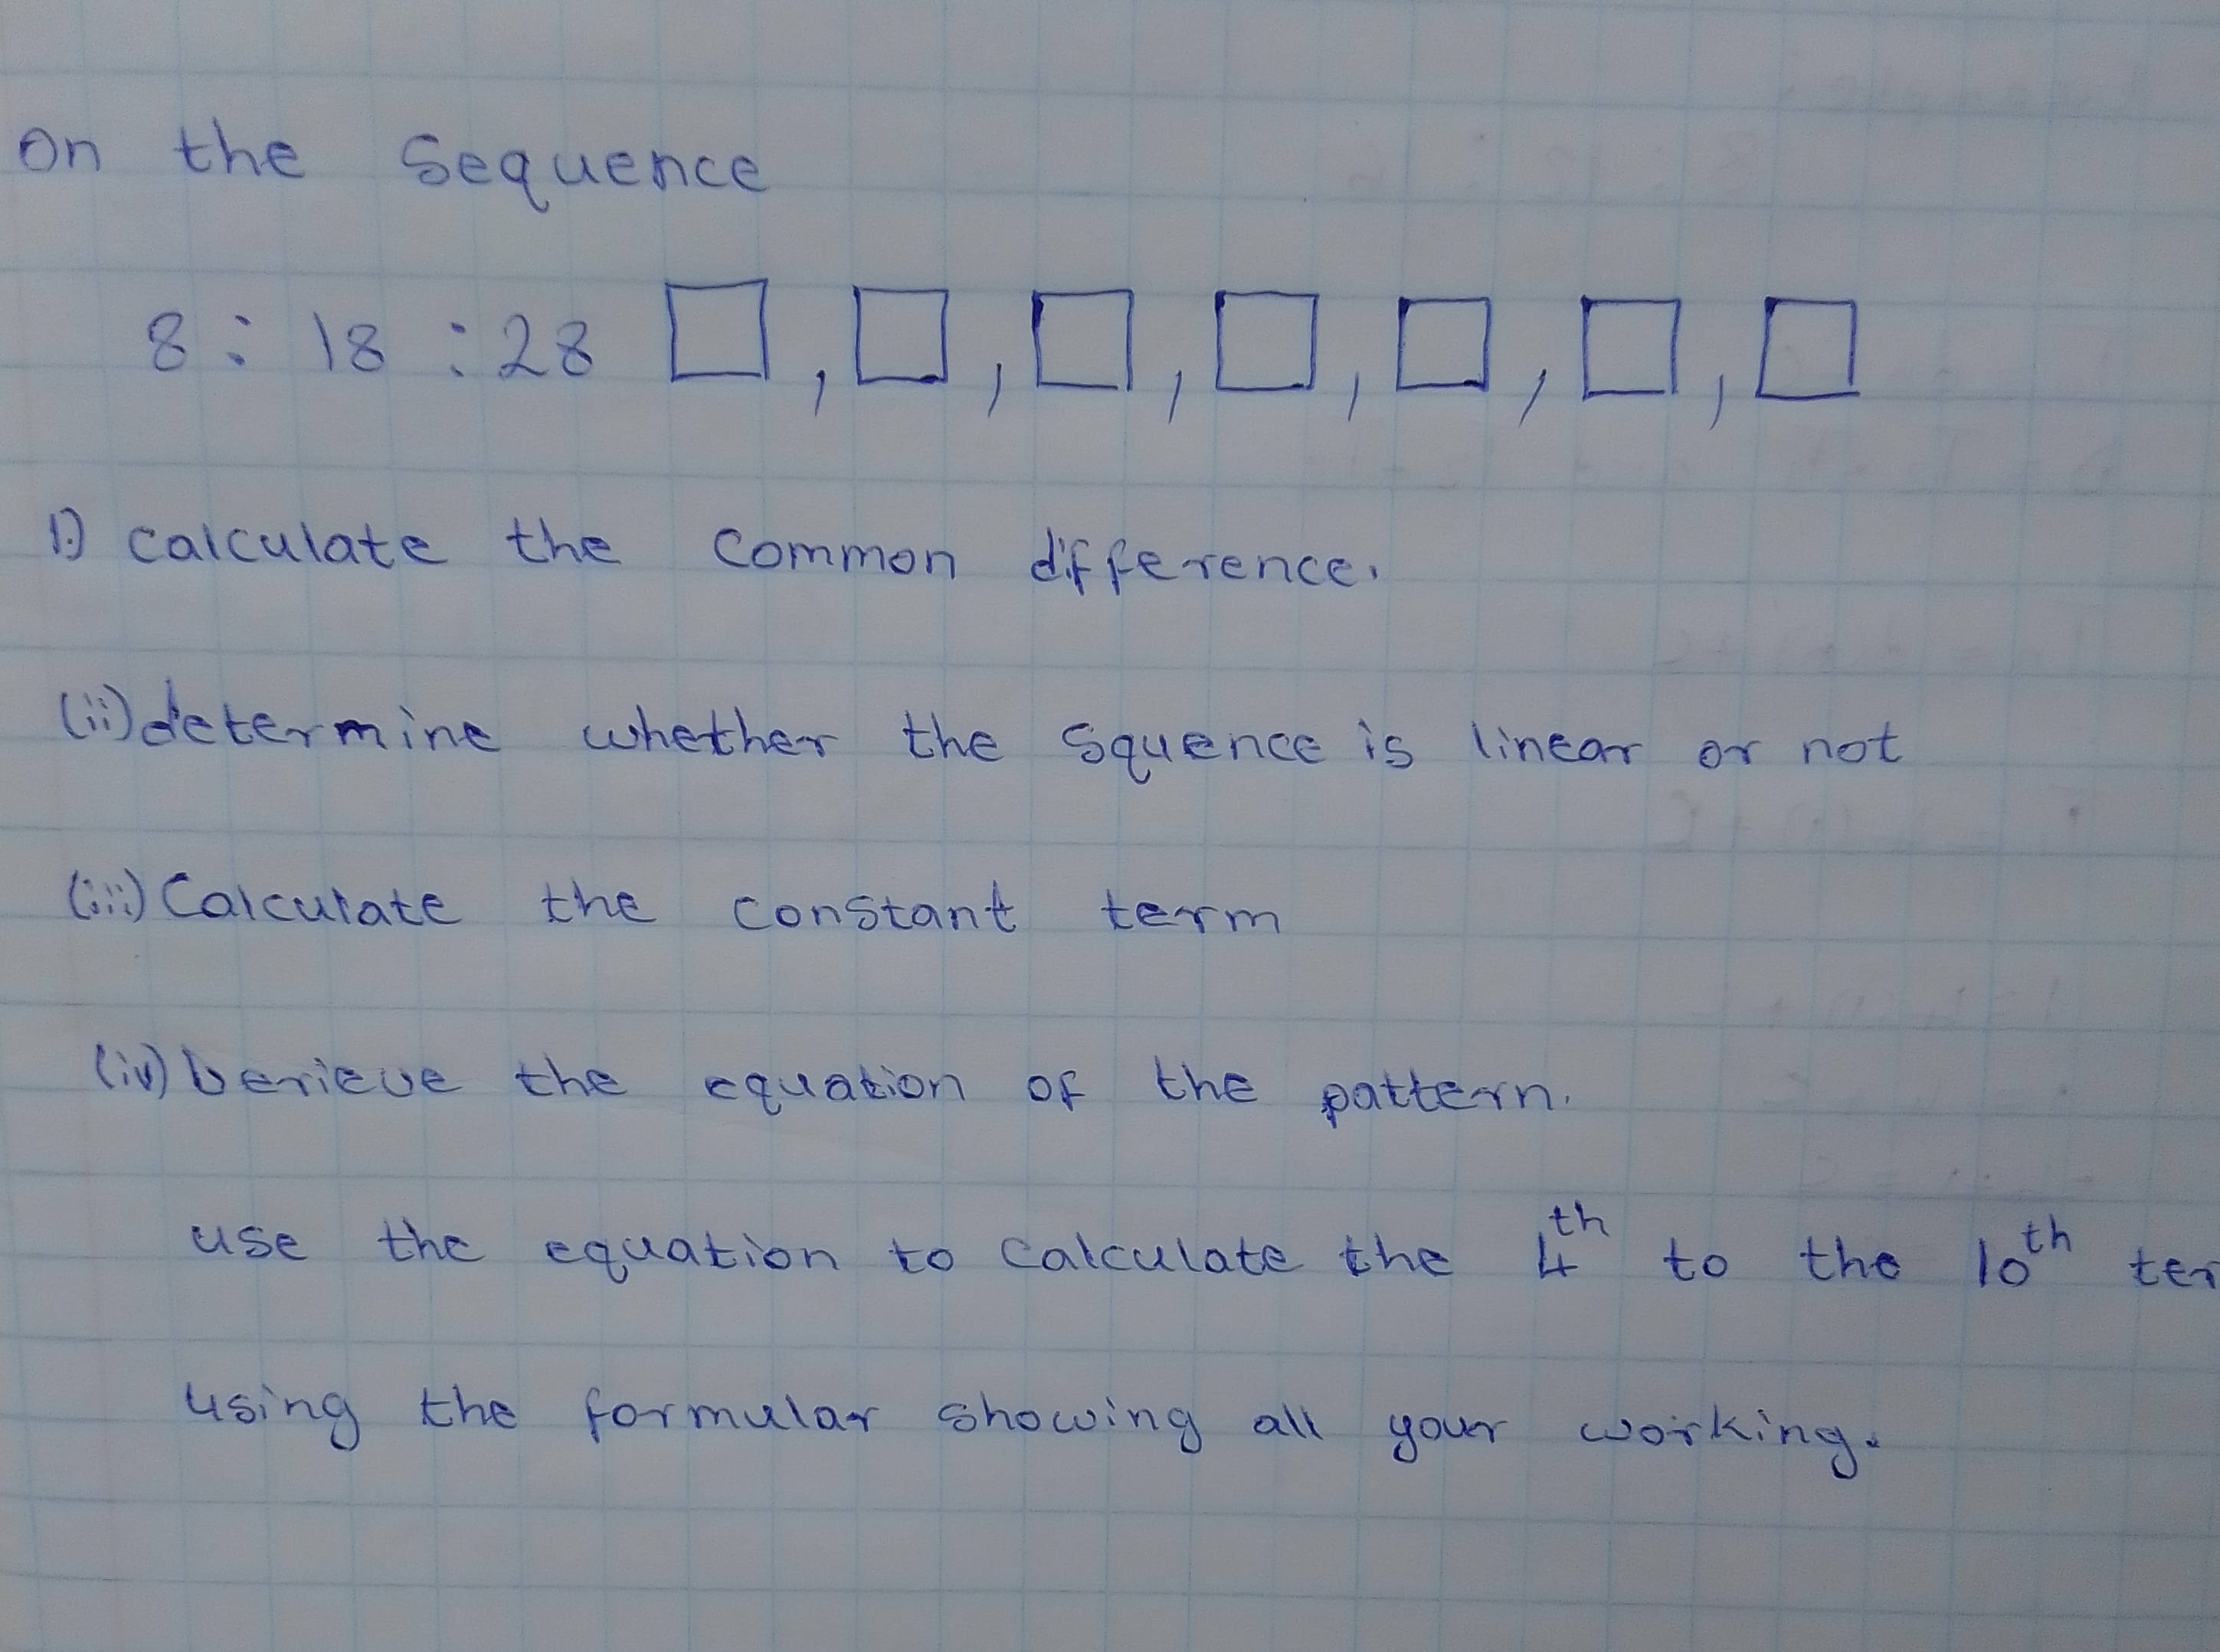 on the sequence
8 : 18 : 28 □ , □ , □ , □ , □ , □ , □
i) calculate the common difference.
(ii) determine whether the squence is linear or not
(iii) Calculate the constant term
(iv) Derieve the equation of the pattern.
use the equation to calculate the 4th to the 10th ter
using the formular showing all your working.